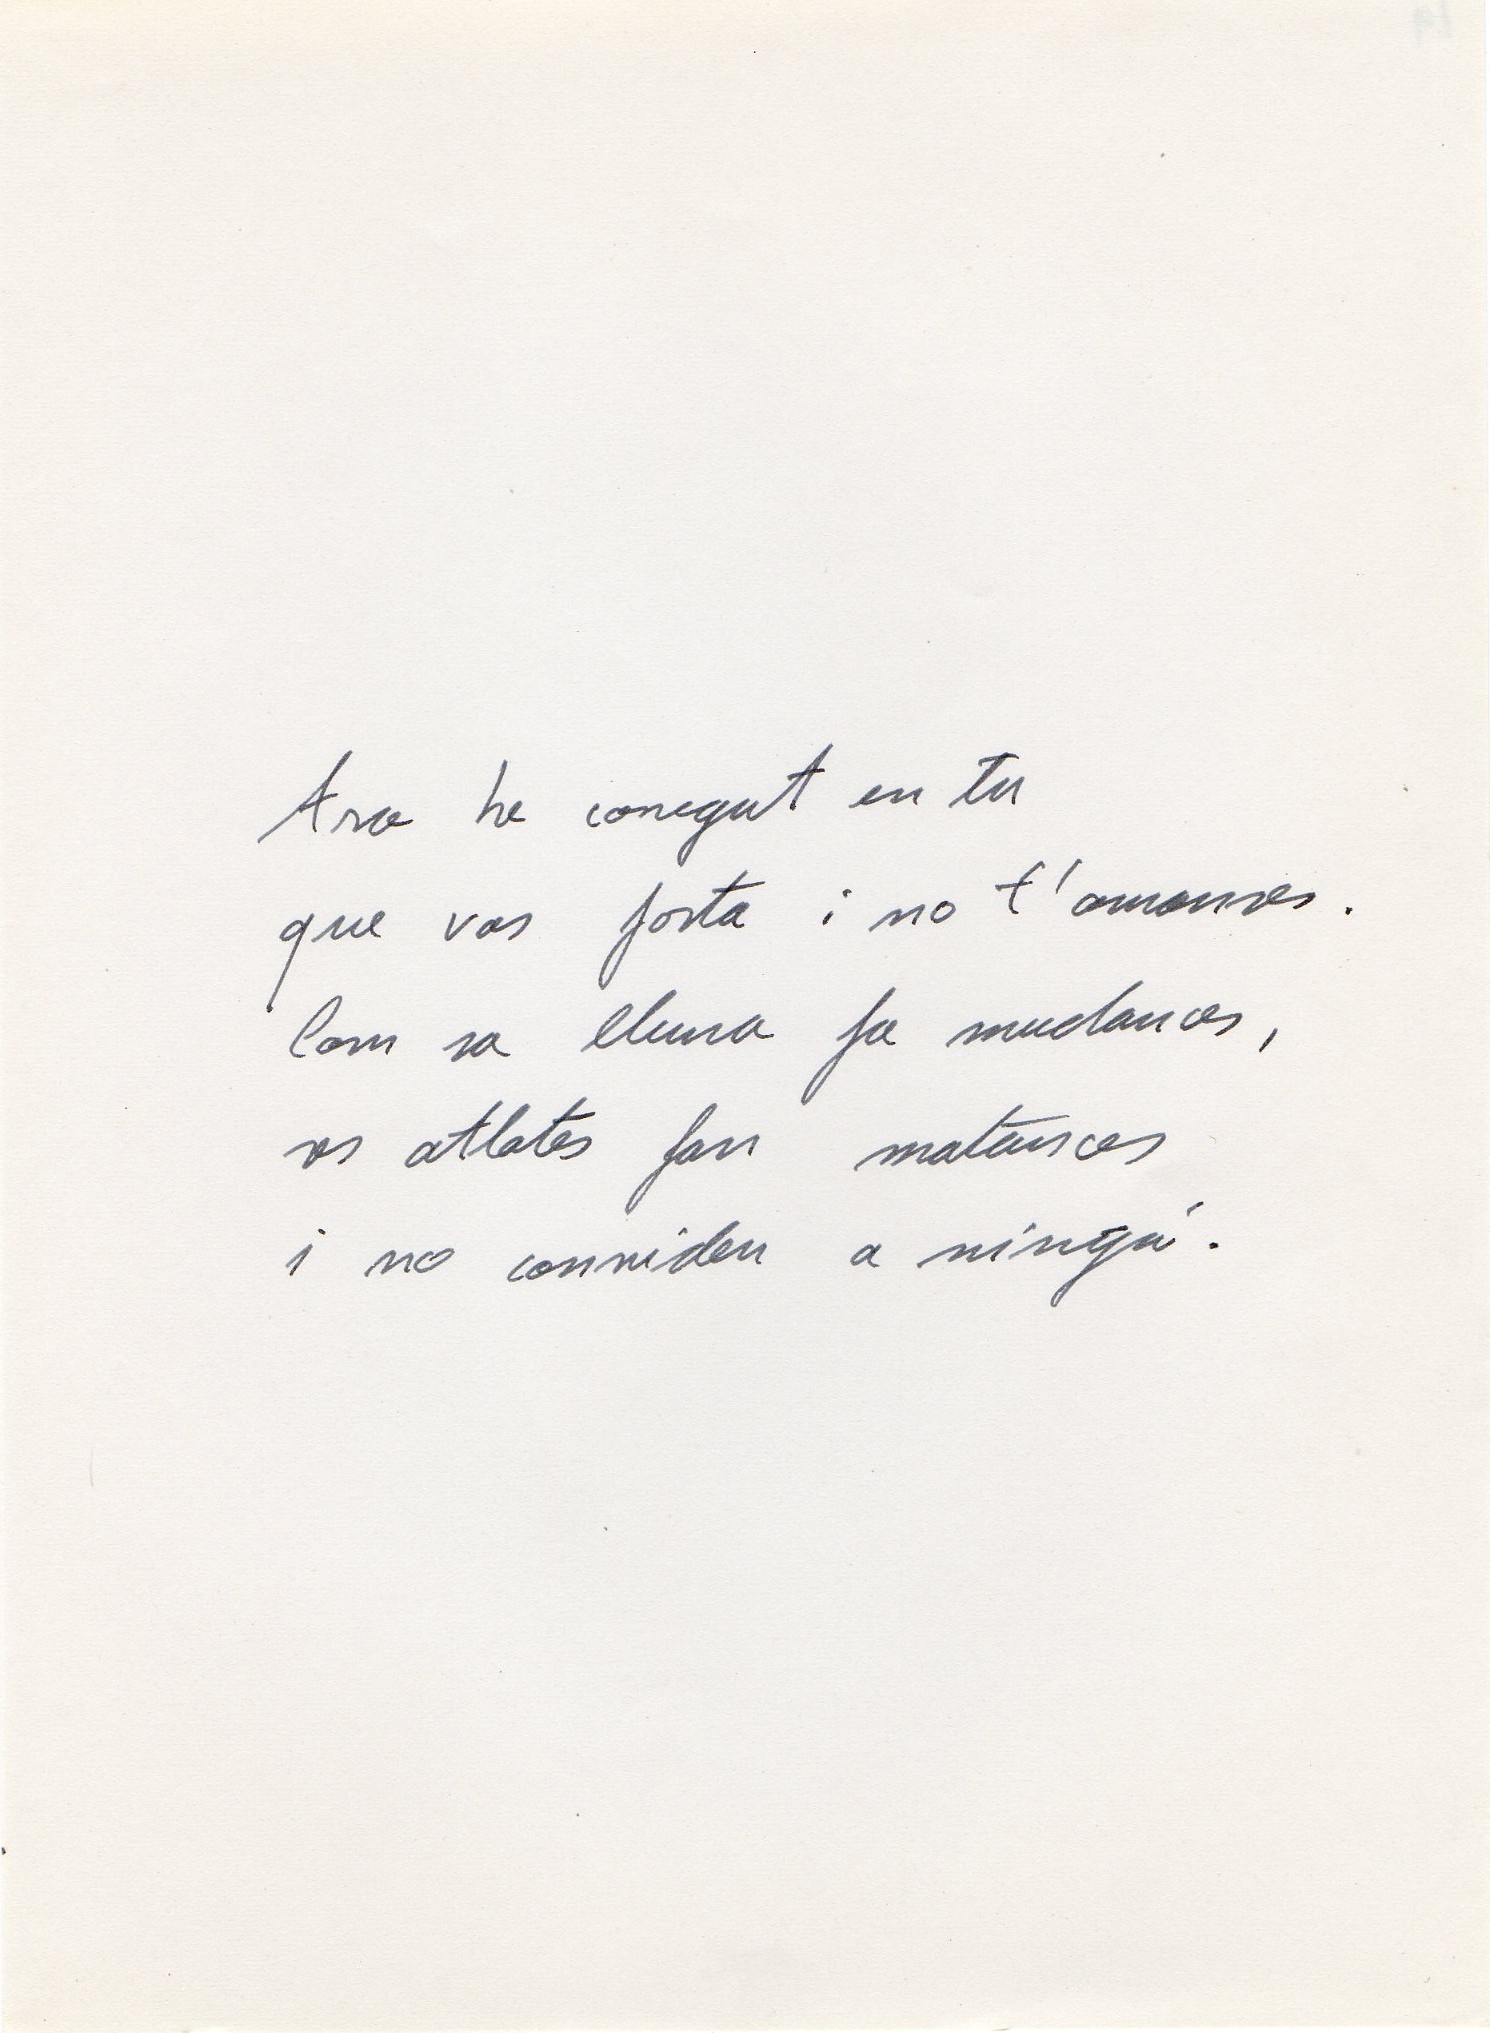 Ara he conegut en tu
que vas forta i no t'amanses.
Com sa lluna fa mudances,
es atlotes fan matances
i no conviden a ningú.